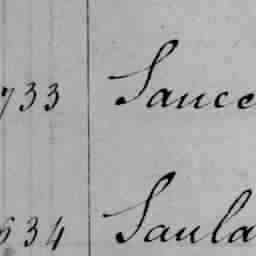 733 Sauce
634 Saula